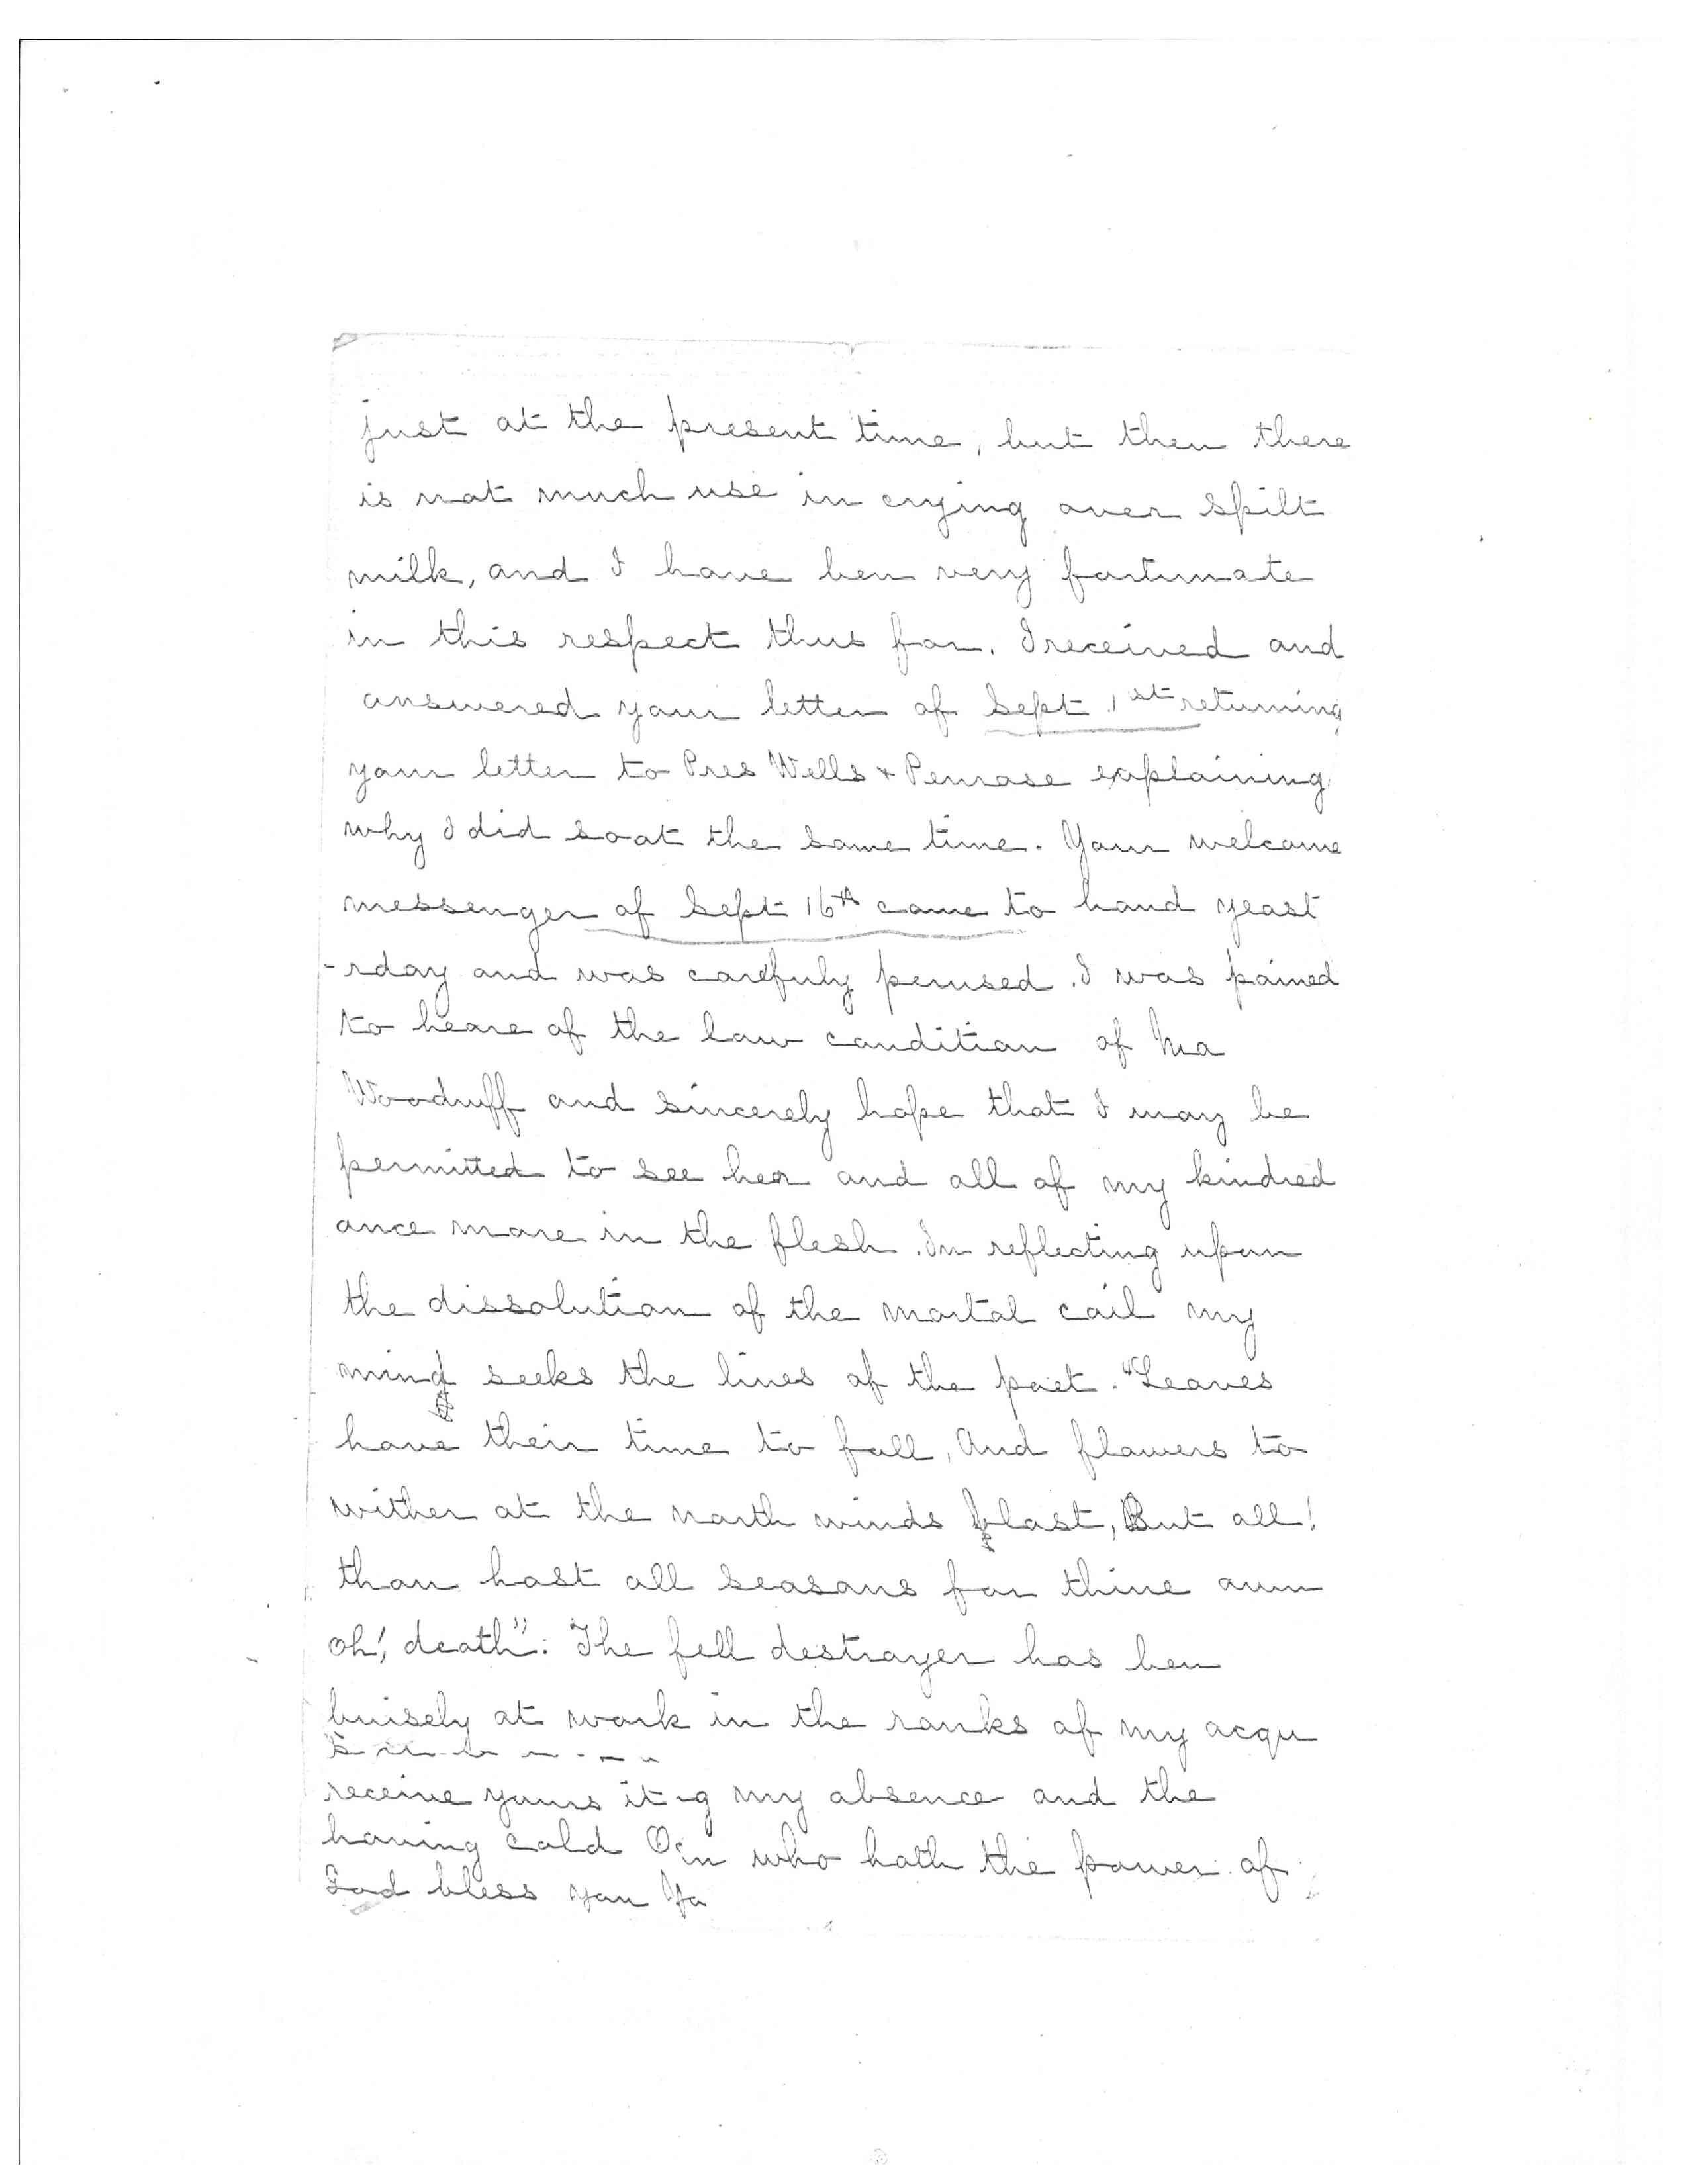 just at the present time, but then there
is not much use in crying over spilt
milk, and I have ben very fortunate
in this respect thus far. I received and
answered your letter of Sept. 1st returning
your letter to Pres Wells & Penrose explaining
why I did so at the same time. Your welcome
messenger of Sept 16th came to hand yeast
-rday and was carefuly perused. I was pained
to heare of the low condition of Ma
Woodruff and sincerely hope that I may be
permitted to see her and all of my kindred
once more in the flesh. In reflecting upon
the dissolution of the mortal coil my
mind seeks the lines of the poet. "Leaves
have their time to fall, And flowers to
wither at the north winds blast, But all!
thou hast all seasons for thine own
oh! death". The fell destroyer has ben
buisely at work in the ranks of my acqu
receive yours it g my absence and the
having cold O in who hath the power of
God bless you Yo